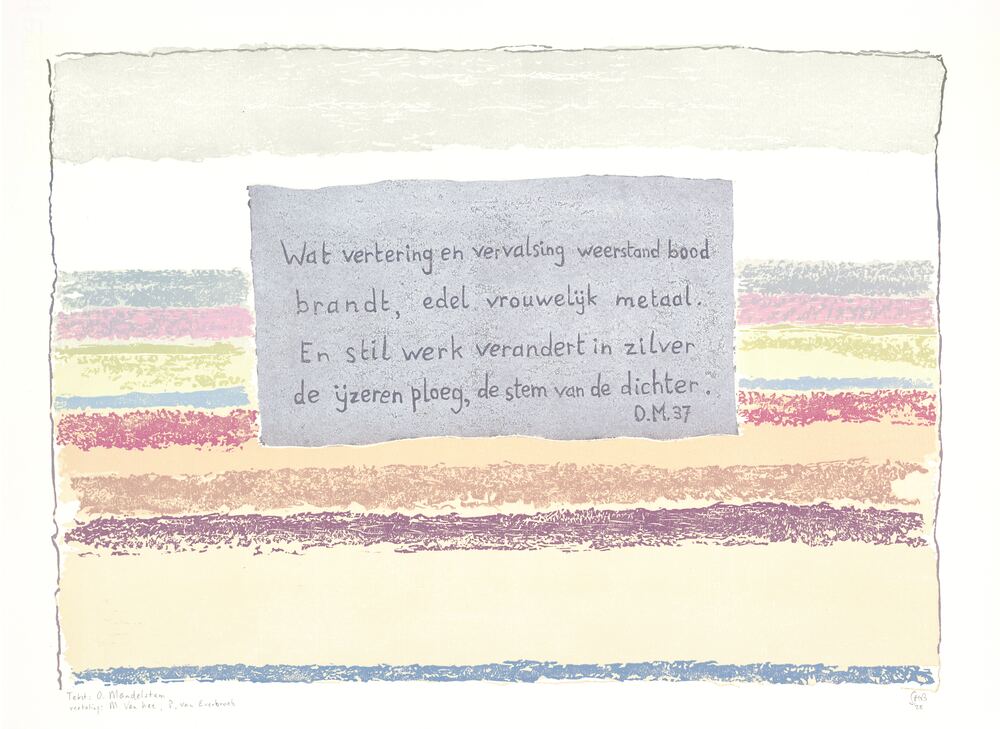 Wat vertering en vervalsing weerstand bood
brandt, edel vrouwelijk metaal.
En stil werk verandert in zilver
de ijzeren ploeg, de stem van de dichter.
O.M. 37
Tekst: O. Mandelstam
vertaling: M. Van hee; P. van Everbroeck